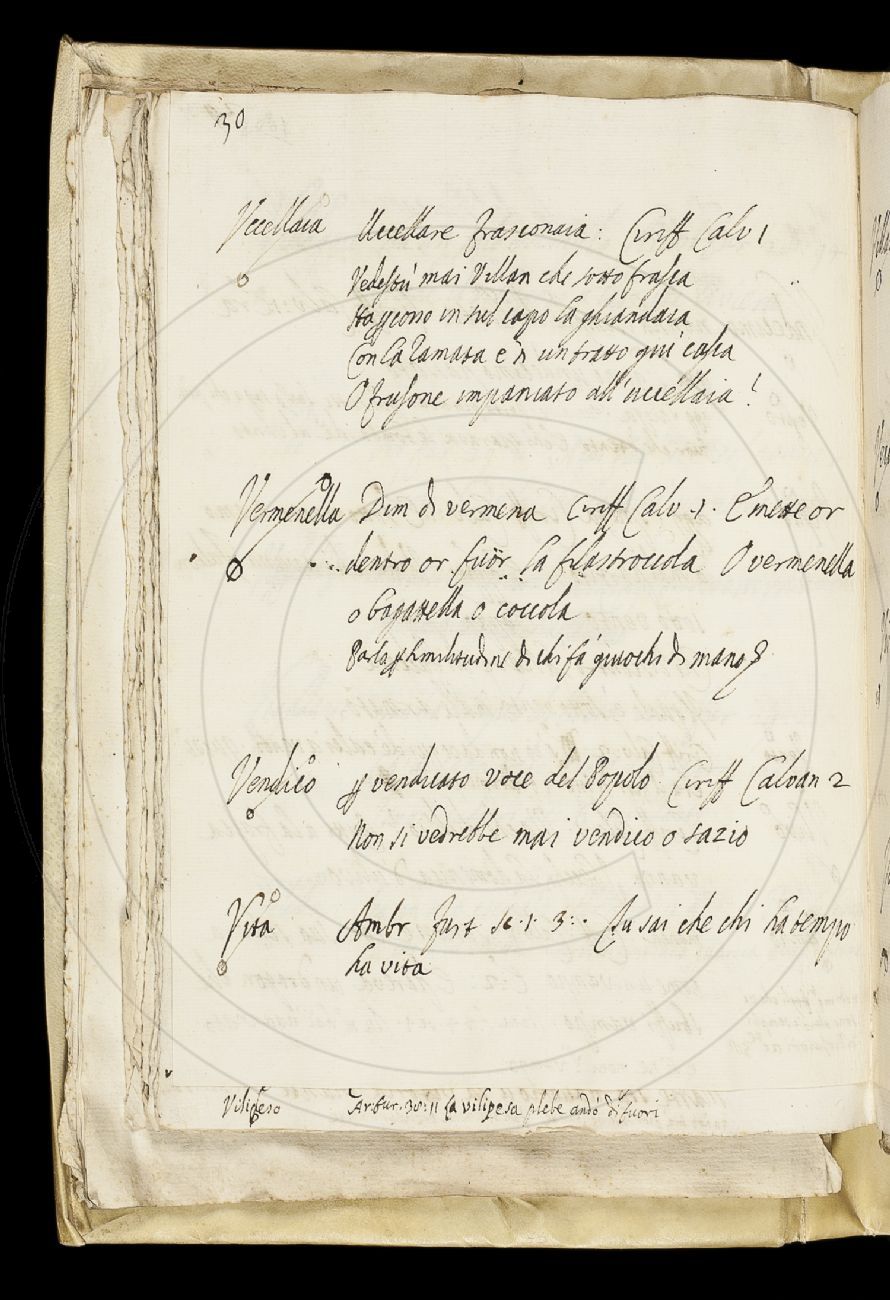 30
Uccellaia Uccellare frasconaia: Ciriff Calv 1
Vedestu mai Villan che sotto frasca
in sul capo la ghiandaia
Con la ramata e 'n un tratto giu casca
O frusone impaniato all'uccellaia!
Vermenella Dim di vermena Ciriff Calv. 1. E mette or
dentro or fuor la filastroccola O vermenella
o bagattella o coccola
Parla p similitudine di chi fa giuochi di mano
Vendico p vendicato voce del Popolo Ciriff Calvan 2
Non si vedrebbe mai vendico o sazio
Vita Ambr Furt sc. 1. 3. Tu sai che chi ha tempo
ha vita
Vilipeso Ar. fur. 30: 11 la vilipesa plebe andò di fuori